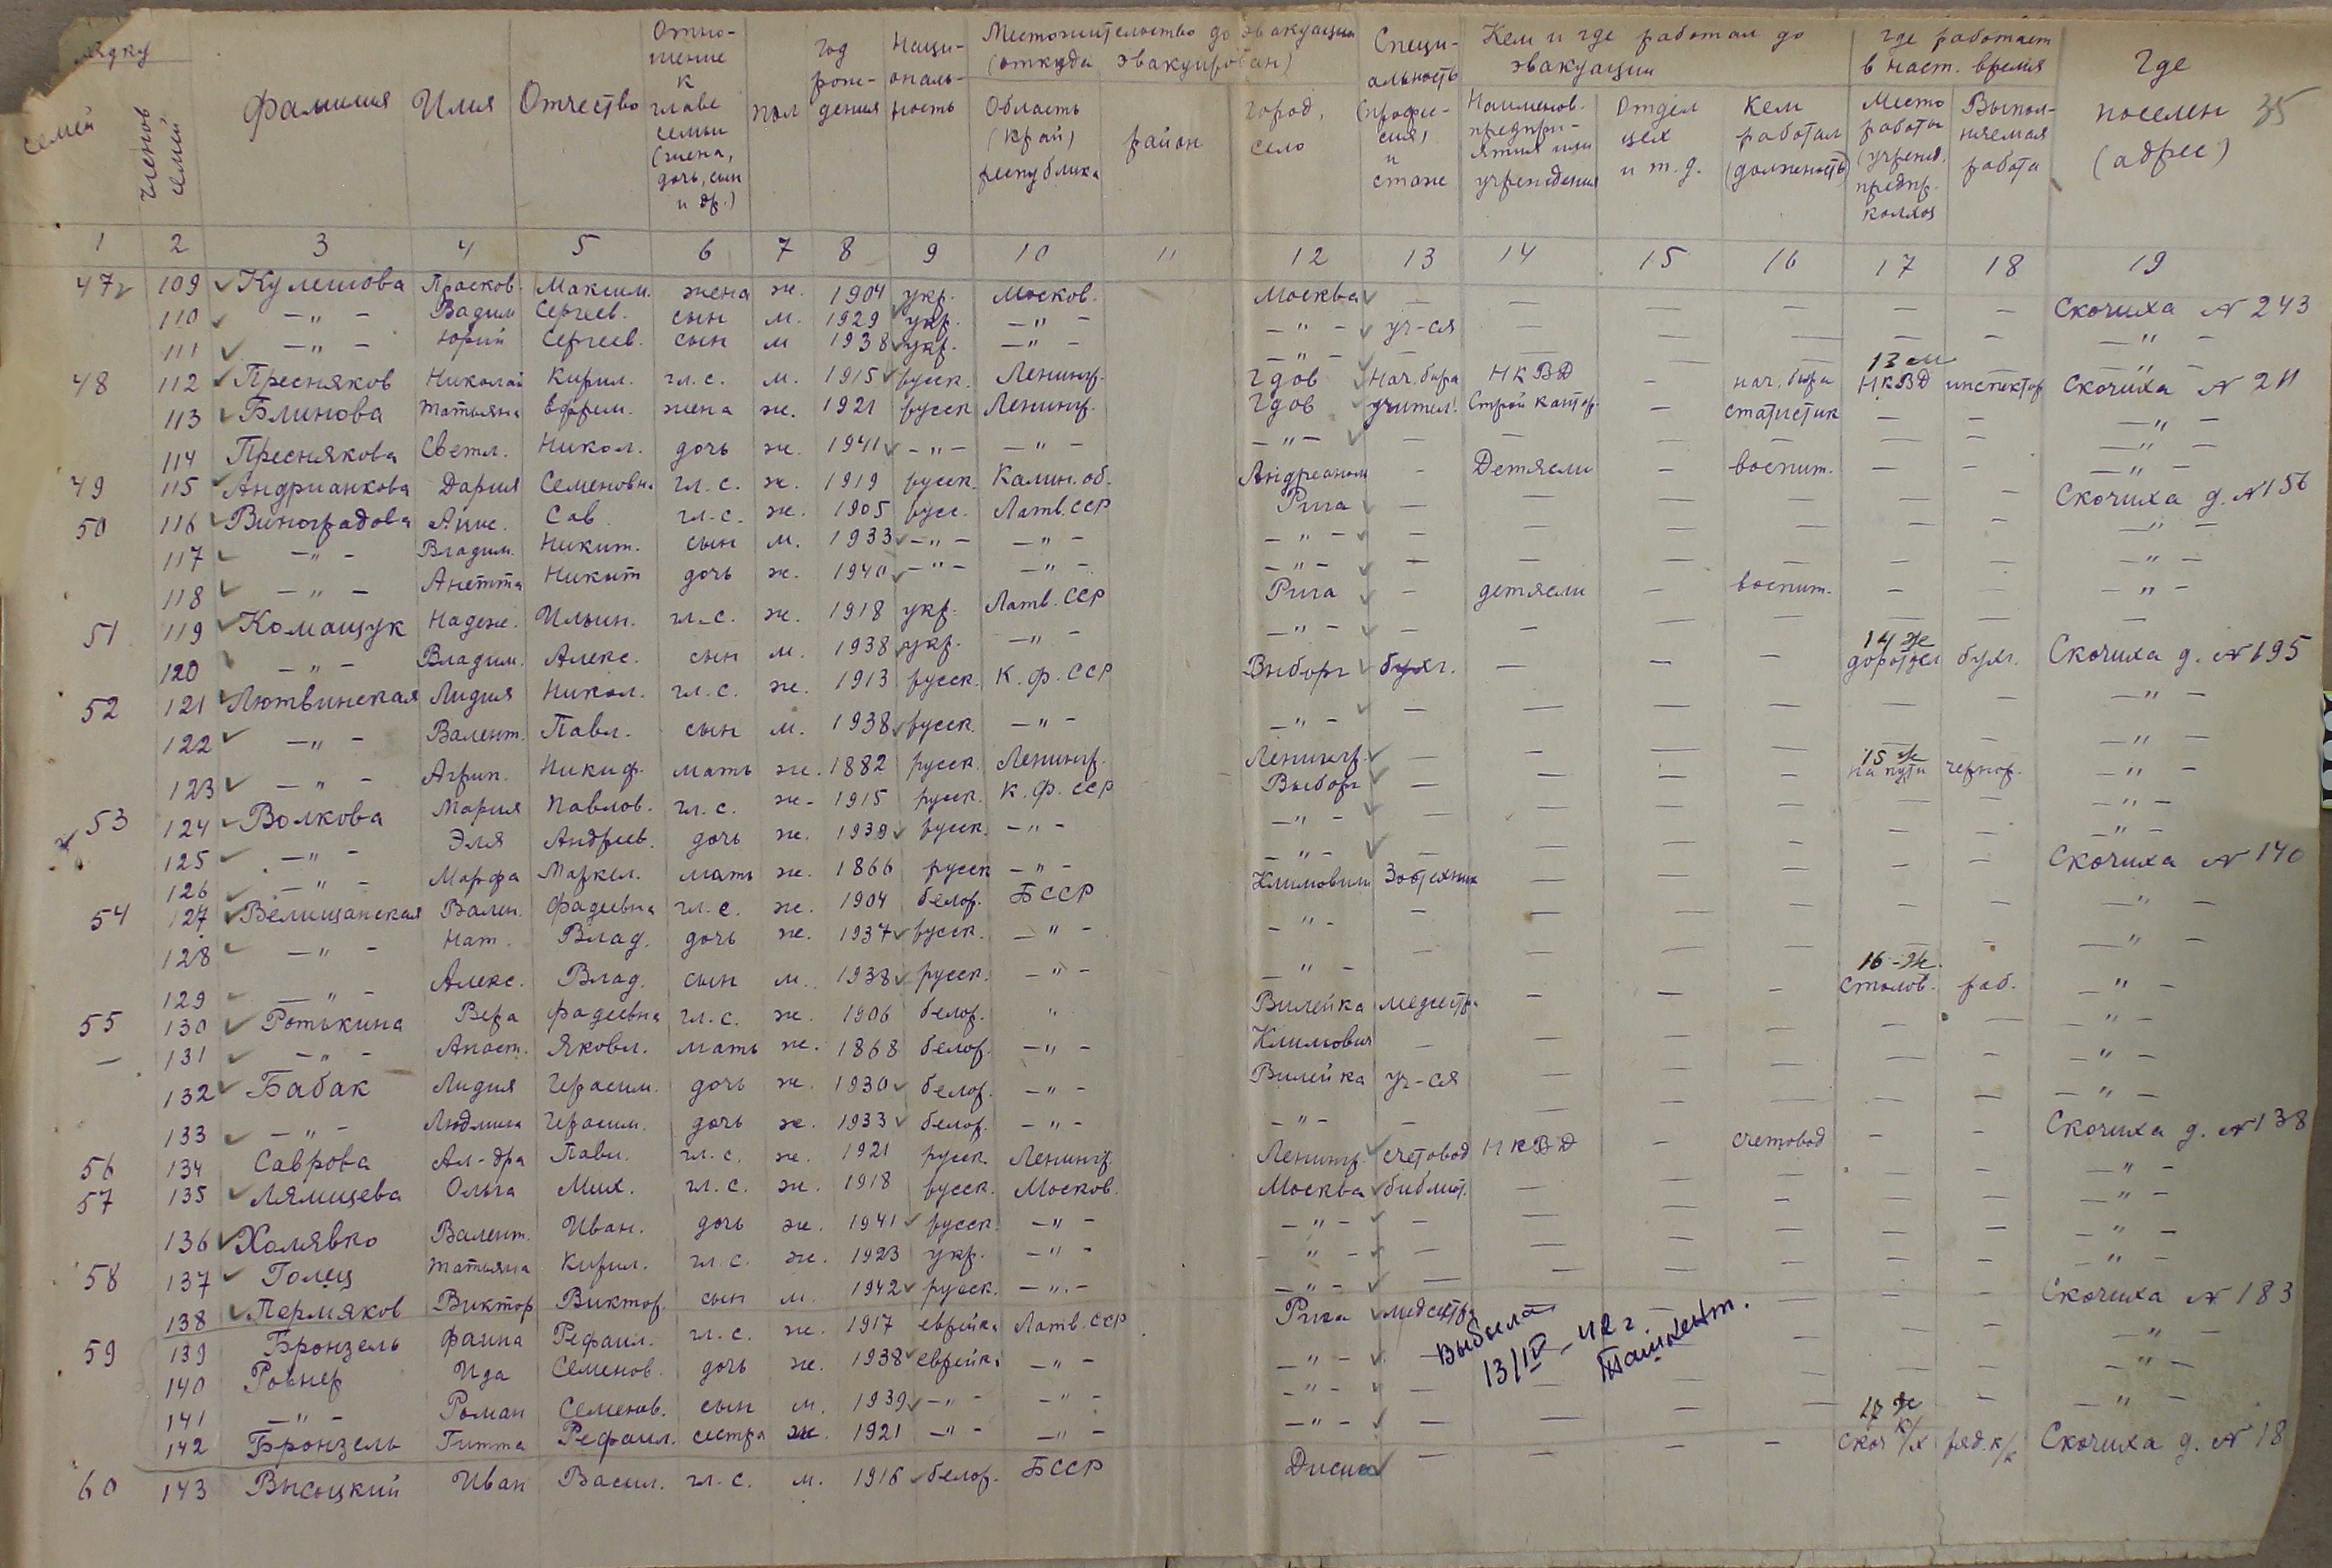 семей
членов семей
Фамилия
Имя
Отчество
Отно-
шение
к
главе
семьи
(жена,
дочь, сын
и др.)
пол
год
рож-
дения
Наци-
ональ-
ность
Местожительство до эвакуации
(откуда эвакуирован)
Область
(край)
республика
район
город,
село
Специ-
альность
(профес-
сия)
и
стаж
Кем и где работал до
эвакуации
Наименов.
предпри-
ятия или
учреждения
Отдел
цех
и т. д.
Кем
работал
(должность)
где работает
в наст. время
Место
работы
(учрежд.
предпр.
колхоз
Выпол-
няемая
работа
Где
поселен
(адрес)
35
1 2 3 4 5 6 7 8 9 10 11 12 13 14 15 16 17 18 19
47 109 Кулешова Прасков. Максим. жена ж. 1904 укр. Москов. Москва — — — — — — Скочиха № 243
110 —"— Вадим Сергеев. сын м. 1929 укр. —"— —"— уч-ся — — — — — —"—
111 —"— Юрий Сергеев. сын м 1938 укр. —"— —"— — — — — — — —"—
48 112 Пресняков Николай Кирил. гл. с. м. 1915 русск. Ленингр. Гдов Нач. бюро НКВД — нач. бюро 13 м НКВД инспектор Скочиха № 211
113 Блинова Татьяна Ефрем. жена ж. 1921 русск Ленингр. Гдов учител. Строй контор. — статистик — — —"—
114 Преснякова Светл. Никол. дочь ж. 1941 —"— —"— —"— — — — — — — —"—
49 115 Андрианкова Дария Семеновна гл. с. ж. 1919 русск. Калин. об. — Детясли — воспит. — — —"—
50 116 Виноградова Анис. Сав. гл. с. ж. 1905 русс. Латв. ССР Рига — — — — — — Скочиха д. № 156
117 —"— Владим. Никит. сын м. 1933 —"— —"— —"— — — — — — — —"—
118 —"— Анетта Никит дочь ж. 1940 —"— —"— —"— — — — — — — —"—
51 119 Комащук Надеж. Ильин. гл. с. ж. 1918 укр. Латв. ССР Рига — детясли — воспит. — — —"—
120 —"— Владим. Алекс. сын м. 1938 укр. —"— —"— — — — — — —
52 121 Лютвинская Лидия Никол. гл. с. ж. 1913 русск. К. Ф. ССР Выборг бухг. — — — 14 ж доротдел бухг. Скочиха д. № 195
122 —"— Валент. Павл. сын м. 1938 русск. —"— —"— — — — — — — —"—
123 —"— Агрип. Никиф. мать ж. 1882 русск. Ленингр. Ленингр. — — — — — — —"—
53 124 Волкова Мария Павлов. гл. с. ж. 1915 русск. К. Ф. ССР Выборг — — — — 15 ж на пути чернор. —"—
125 —"— Эля Андреев. дочь ж. 1939 русск. —"— —"— — — — — — — —"—
126 —"— Марфа Маркел. мать ж. 1866 русск —"— —"— — — — — — — —"—
54 127 Велищанская Вален. Фадеевна гл. с. ж. 1904 белор. БССР Климовичи Зоотехник — — — — — Скочиха № 140
128 —"— Нат. Влад. дочь ж. 1937 русск. —"— —"— — — — — — — —"—
129 —"— Алекс. Влад. сын м. 1938 русск. —"— —"— — — — — — — —"—
55 130 Ротькина Вера Фадеевна гл. с. ж. 1906 белор. " Вилейка медсестра — — — 16 - ж. столов. раб. —"—
— 131 —"— Анаст. Яковл. мать ж. 1868 белор. —"— Климович — — — — — — —"—
132 Бабак Лидия Герасим. дочь ж. 1930 белор. —"— Вилейка уч-ся — — — — — —"—
133 —"— Людмила Герасим. дочь ж. 1933 белор. —"— —"— — — — — — — —"—
56 134 Саврова Ал-дра Павл. гл. с. ж. 1921 русск. Ленингр. Ленингр. счетовод НКВД — счетовод — — Скочиха д. № 138
57 135 Лямцева Ольга Мих. гл. с. ж. 1918 русск. Москов. Москва библиот. — — — — — —"—
136 Холявко Валент. Иван. дочь ж. 1941 русск. —"— —"— — — — — — — —"—
58 137 Голец Татьяна Кирил. гл. с. ж. 1923 укр. —"— —"— — — — — — — —"—
138 Пермяков Виктор Виктор. сын м. 1942 русск. —"— —"— — — — — — — —"—
59 139 Бронзель Фаина Рефаил. гл. с. ж. 1917 еврейка Латв. ССР Рига медсестр. — — — — — Скочиха № 183
140 Ровнер Ида Семенов. дочь ж. 1938 еврейка —"— —"— — — — — — — —"—
141 —"— Роман Семенов. сын м. 1939 —"— —"— —"— — — — — — — —"—
142 Бронзель Гитта Рефаил. сестра ж. 1921 —"— —"— —"— — — — — — — —"—
Выбыла
13/IV - 42 г
Ташкент.
60 143 Высоцкий Иван Васил. гл. с. м. 1916 белор. БССР Дисна — — — — 17 ж Скоч к/х ряд. к/х Скочиха д. № 18